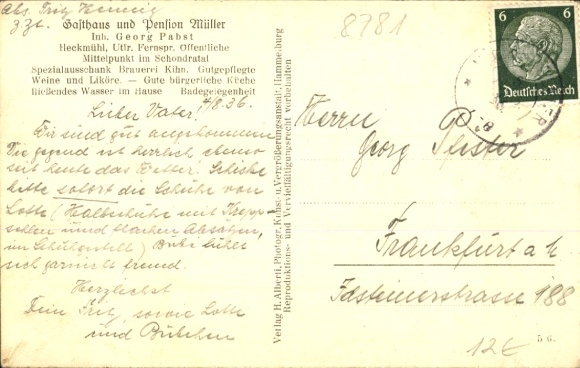 Abs. Fritz Hennig
z. Zt. Gasthaus und Pension Müller
Inh. Georg Pabst
Heckmühl, Utlr. Fernspr. Öffentliche
Mittelpunkt im Schondratal
Spezialausschank Brauerei Kihn. Gutgepflegte
Weine und Liköre. — Gute bürgerliche Küche
fließendes Wasser im Hause Badegelegenheit
4/8.36.
Lieber Vater!
Wir sind gut angekommen
Die Gegend ist herrlich ebenso
seit heute das Wetter. Schicke
bitte sofort die Schuhe von
Lotte (Halbschuhe mit Krepp-
sohlen und flachen Absätzen,
im Schuhgestell) Bubi fühlt
sich garnicht fremd.
Herzlichst
Dein Fritz, sowie Lotte
und Bübchen
Verlag H. Alberti, Photogr. Kunst- u. Vergrößerungsanstalt, Hammelburg
Reproduktions- und Vervielfältigungsrecht vorbehalten
8781
6 6
Deutsches Reich
Herrn
Georg Pfister
Frankfurt a/M
Idsteinerstrasse 188
5 6.
12€